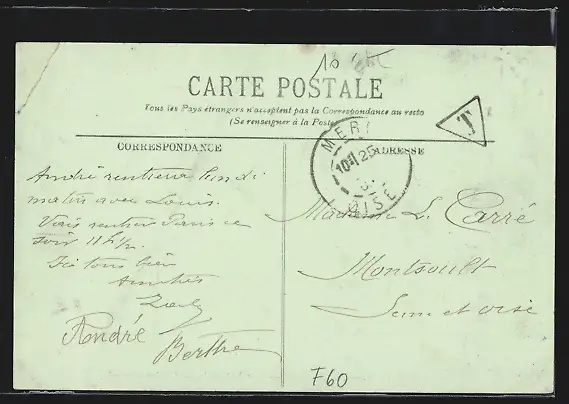 10
CARTE POSTALE
Tous les Pays étrangers n'acceptent pas la Correspondance au recto
(Se renseigner à la Poste)
T
CORRESPONDANCE
ADRESSE
MERY
OISE
André rentrera lundi
matin avec Louis.
Vais rentrer Paris ce
soir 11h½.
Ici tous bien
Amitiés
André
Berthe
Madame L. Carré
Montsoult
Seine et Oise
F60